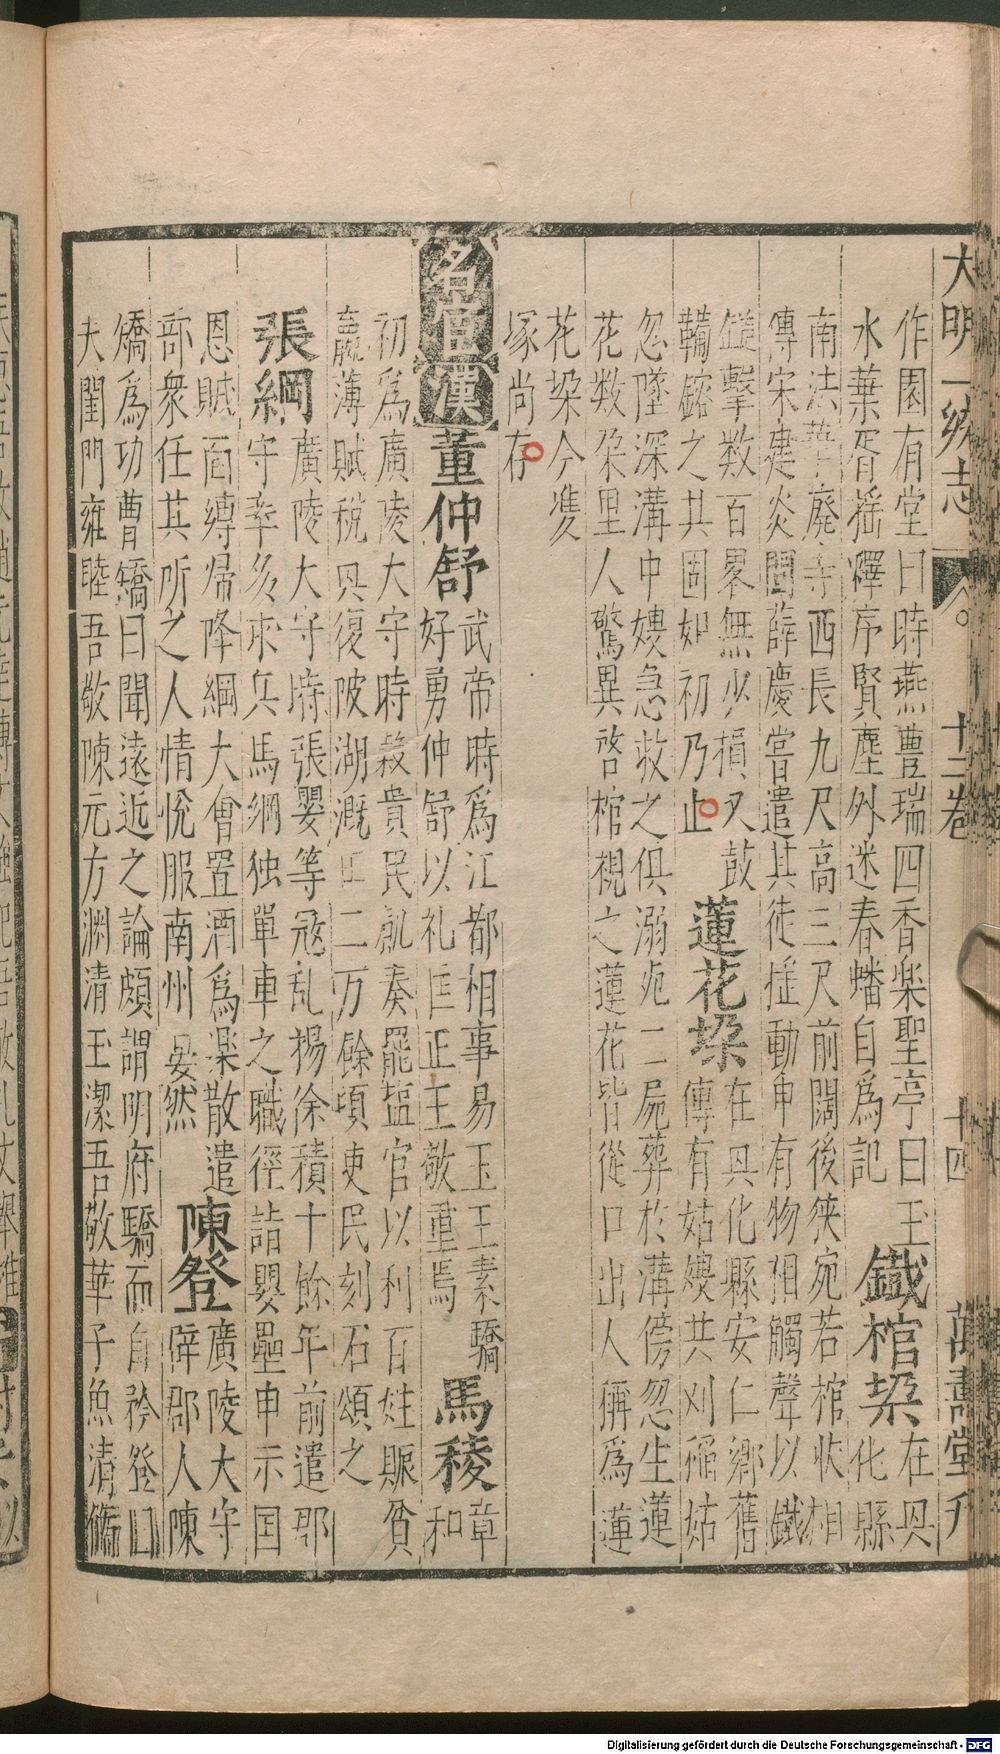 大明一統志 十二卷 十四 萬壽堂刋
作園有堂曰時燕豊瑞四香楽聖亭曰玉
水葉胥揺襗序賢塵外迷春蟠自為記 鐡棺㓗 在具化縣
南法華廢寺西長九尺高三尺前闊後狹宛若棺狀相
傳宋建炎間薛慶嘗遣其徒揺動中有物相觸聲以鐡
鎚擊数百畧無少損又鼓
鞴鎔之其固如初乃止 蓮花垜 在具化縣安仁鄉舊
傳有姑嫂共刈稲姑
忽墜深溝中嫂急救之俱溺死二屍葬於溝傍忽生蓮
花数朶里人驚異啓棺視之蓮花皆從口出人稱為蓮
花垜今雙
塚尚存
名宦 漢 董仲舒 武帝時為江都相事易王王素驕
好勇仲舒以礼匡正王敬重焉 馬稜 章
和
初為廣陵大守時穀貴民飢奏罷塩官以利百姓賑貧
羸薄賦税具復陂湖溉田二万餘項吏民刻石頌之
張綱 廣陵大守時張嬰等冦乱楊徐積十餘年前遣郡
守率多求兵馬綱独單車之職徑詣嬰壘申示国
恩賊面縛帰降綱大會置酒為楽散遣
部衆任其所之人情恱服南州晏然 陳登 廣陵大守
辟郡人陳
矯為功曹矯曰聞遠近之論頗謂明府驕而自矜登曰
夫閨門雍睦吾敬陳元方渊清玉潔吾敬華子魚清脩